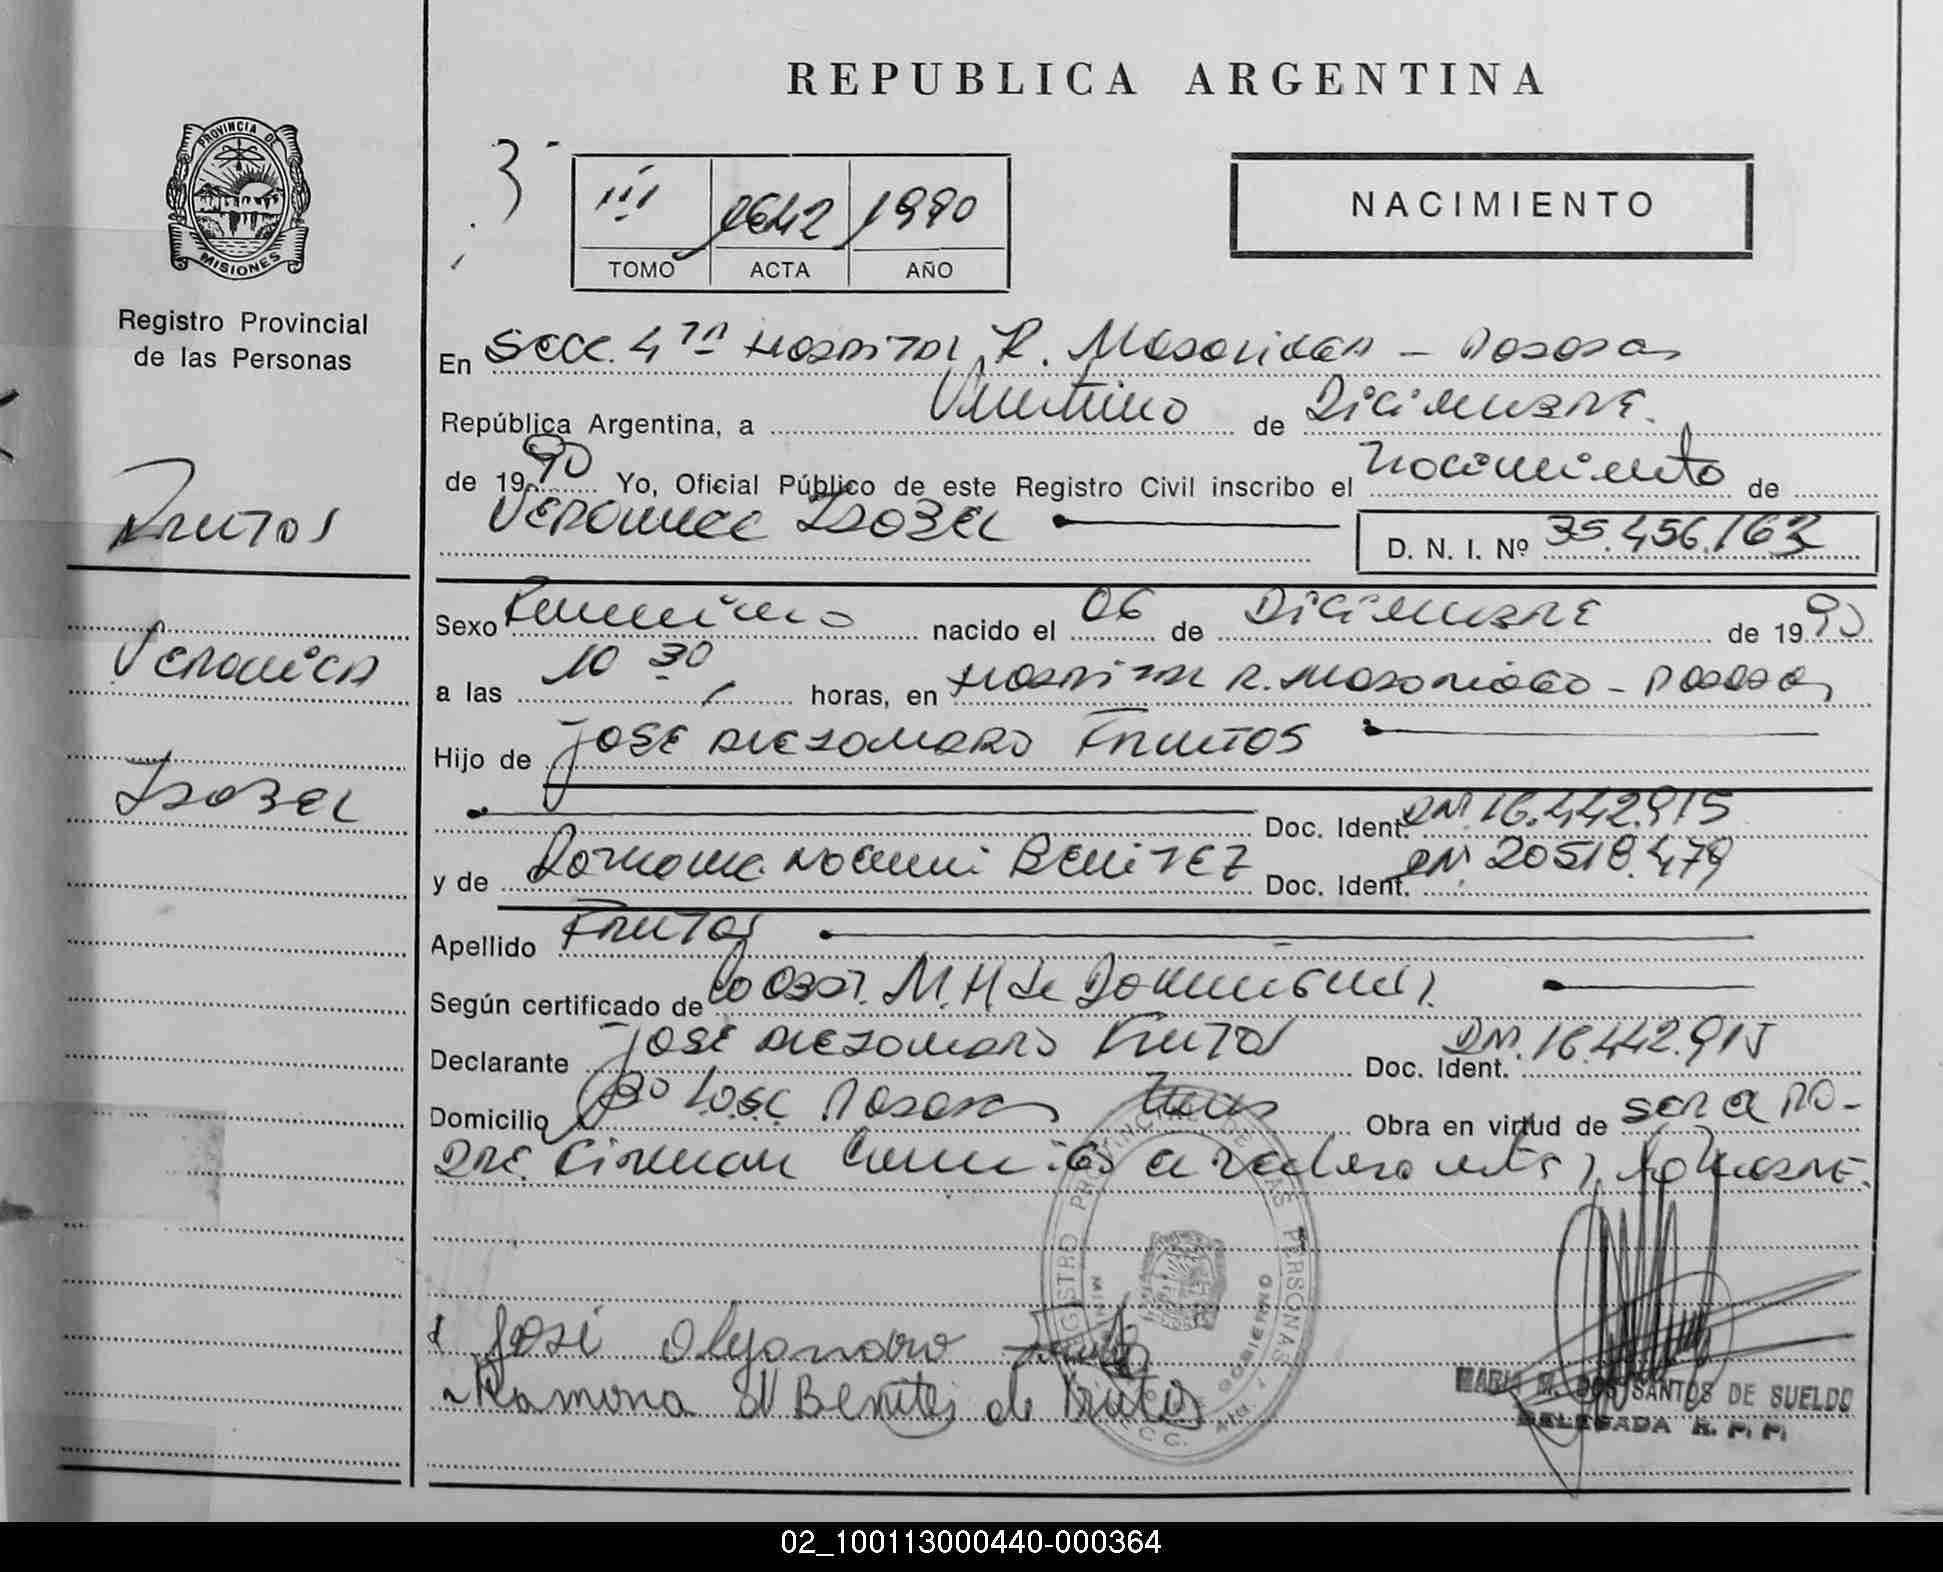 REPUBLICA ARGENTINA
PROVINCIA DE
MISIONES
Registro Provincial
de las Personas
3
III 0642 1990
TOMO ACTA AÑO
NACIMIENTO
En Secc. 4ta Hospital R. Madariaga - Posadas
República Argentina, a Veintiuno de Diciembre.
de 1990 Yo, Oficial Público de este Registro Civil inscribo el nacimiento de
Veronica Isabel
D. N. I. Nº 35.456.162
Frutos
Veronica
Isabel
Sexo Femenino nacido el 06 de Diciembre de 1990
a las 10 30 horas, en Hospital R. Madariaga - Posadas
Hijo de José Alejandro Frutos
Doc. Ident. DNI. 16.442.915
y de Ramona Noemi Benitez Doc. Ident. DNI. 20518.479
Apellido Frutos
Según certificado de M. H de
Declarante José Alejandro Frutos Doc. Ident. DNI. 16.442.915
Domicilio Posadas Mnes Obra en virtud de ser el Pa-
dre Firman
REGISTRO PROVINCIAL DE LAS PERSONAS
José Alejandro Frutos
Ramona N Benitez de Frutos
MARIA M. DOS SANTOS DE SUELDO
DELEGADA R. P. P.
02_100113000440-000364